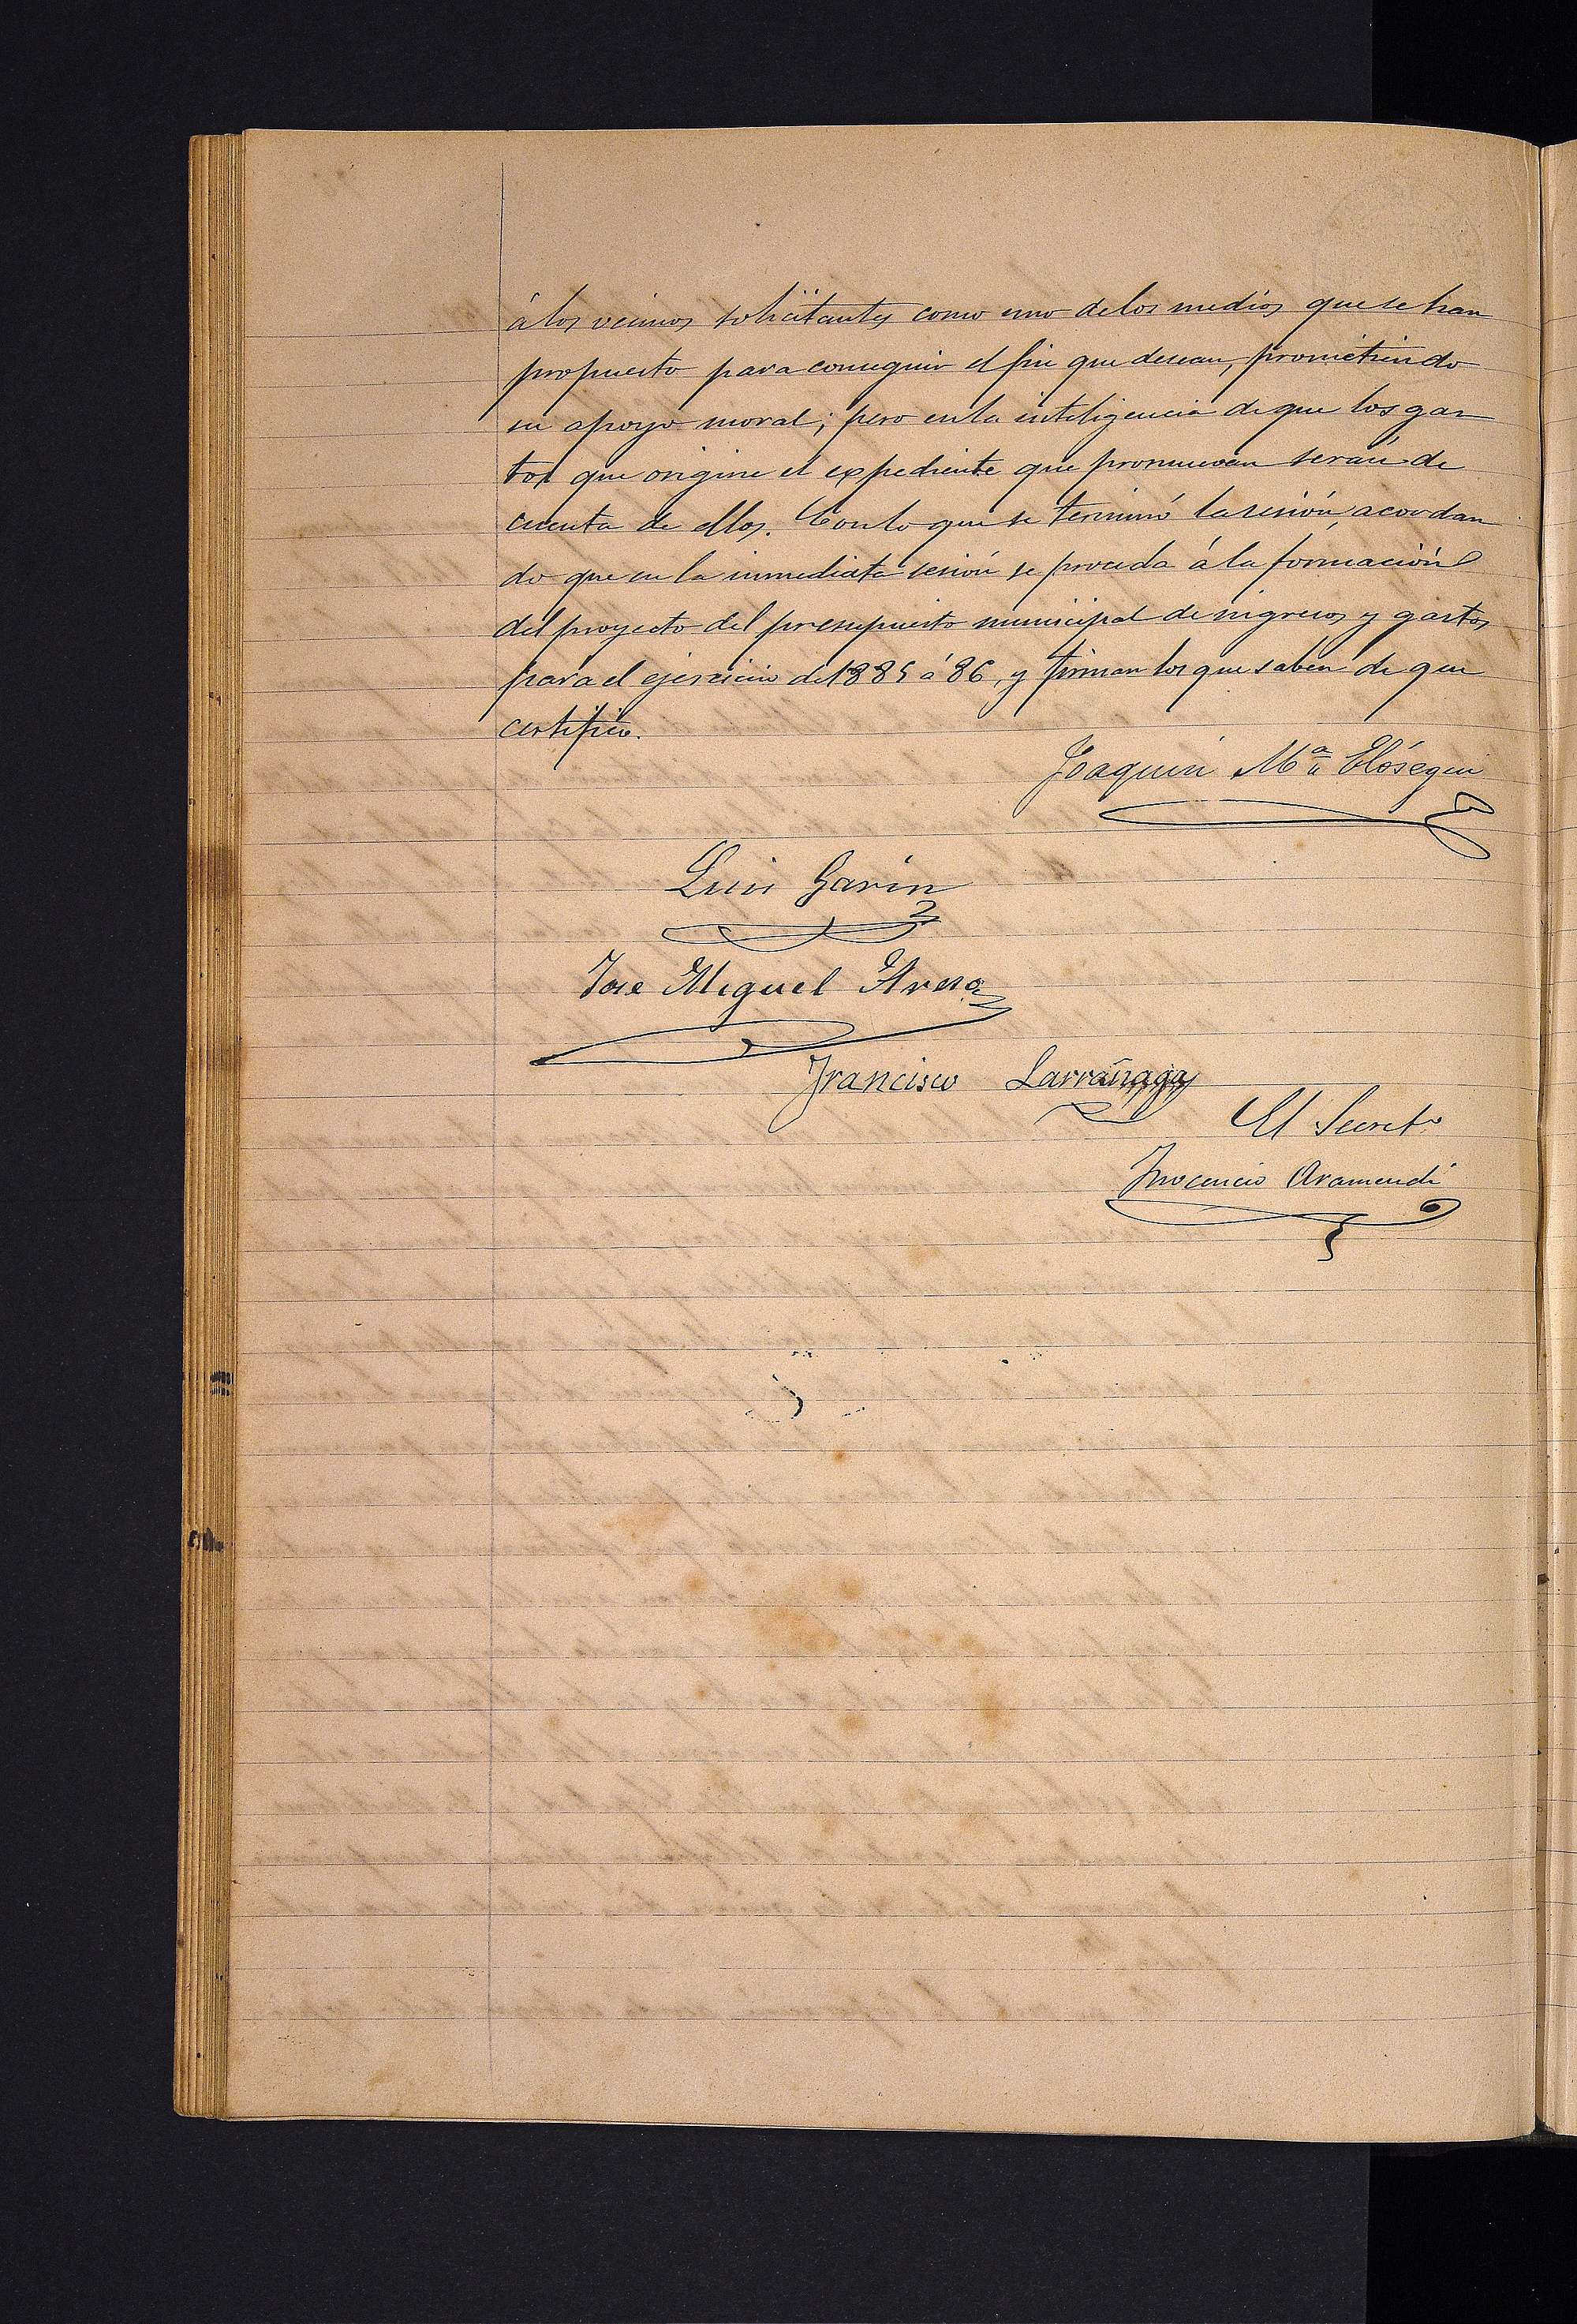 á los vecinos solicitantes como uno de los medios que se han
propuesto para conseguir el fin que desean, prometiendo
su apoyo moral; pero en la inteligencia de que los gas
tos que origine el expediente que promueven serán de
cuenta de ellos. Con lo que se terminó la sesión, acordan
do que en la inmediata sesión se proceda á la formación
del proyecto del presupuesto municipal de ingresos y gastos
para el ejercicio de 1885 á 86, y firman los que saben de que
certifico.
Joaquin Mª Elósegui
Luis Garin
Jose Miguel Aresa
Francisco Larrañaga
El Secretº
Inocencio Aramendi